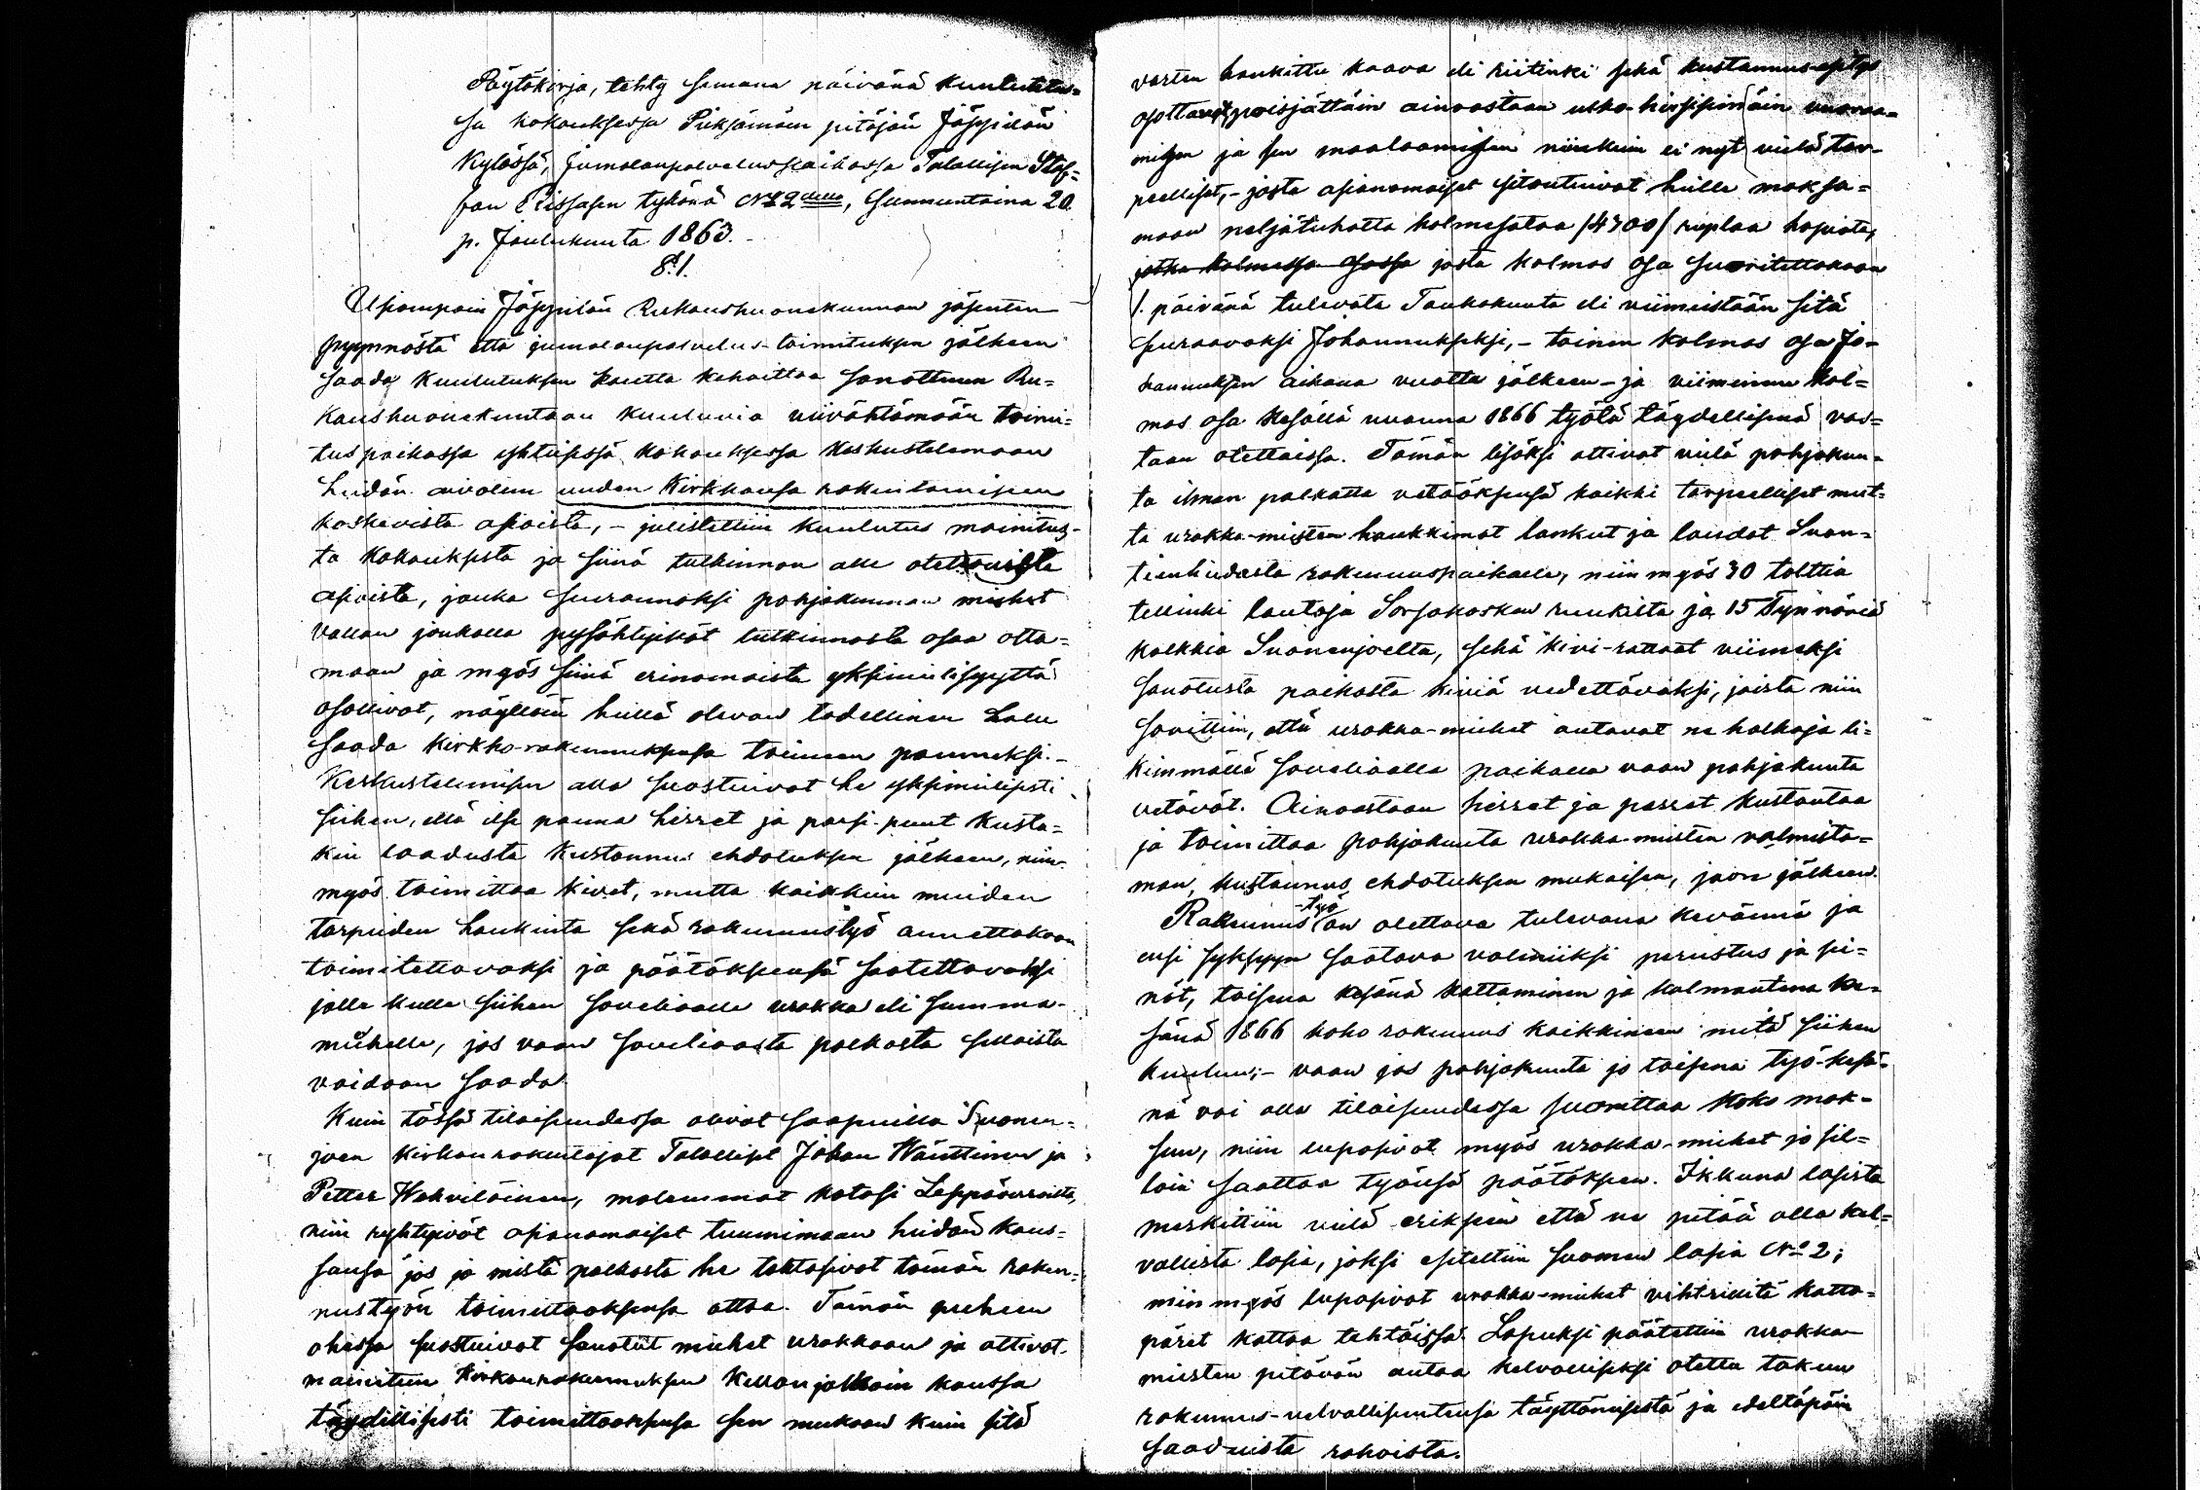 Pöytäkirja, tehty samana päivänä kuulutetus=
sa kokouksessa Pieksämäen pitäjän Jäppilän
kylässä, jumalanpalveluspaikassa Talallisen Staf=
fan Tissasen tykönä N:o 2, Sunnuntaina 20.
p. Joulukuuta 1863.
§.1.
Usiampain Jäppilän Rukoushuonekunnan jäsenten
pyynnöstä että jumalanpalvelus-toimituksen jälkeen
saada kuulutuksen kautta kehoittaa sanottuun Ru=
koushuonekuntaan kuuluvia viivähtämään toimi=
tuspaikassa yhteisessä kokouksessa keskustelemaan
heidän aivotun uuden Kirkkonsa rakentamiseen
koskevista asioista, – julistettiin kuulutus mainitus-
ta kokouksesta ja siinä tutkinnon alle otettavista
asioista, jonka seuraamaksi pohjakunnan miehet
vallan joukolla pysähtyivät tutkinnosta osaa otta=
maan ja myös siinä erinomaista yksimielisyyttä
osottivat, näyttäin heillä olevan todellinen halu
saada kirkko-rakennuksensa toimeen pannuksi. –
Keskustelemisen alla suostuivat he yksimielisesti
siihen, että itse panna hirret ja parsi-puut kusta=
kin laadusta kustannus ehdotuksen jälkeen, niin
myös toimittaa kivet, mutta kaikkiin muiden
tarpeiden hankinta sekä rakennustyö annettakoon
toimitettavaksi ja päätöksensä saatettavaksi
jolle kulle siihen soveliaalle urakka eli summa-
miehelle, jos vaan soveliaasta palkasta sellaista
voidaan saada.
Kuin tässä tilaisuudessa olivat saapuilla Suonen=
joen kirkonrakentajat Talolliset Johan Wänttinen ja
Petter Wehviläinen, molemmat kotosi Leppävirroilta,
niin ryhtyivät asianomaiset tuumimaan heidän kans=
sansa jos ja mistä palkasta he tahtosivat tämän raken=
nustyön toimittaaksensa ottaa. Tämän puheen
ohessa suostuivat sanotut miehet urakkaan ja ottivat
mainitun Kirkonrakennuksen kellonjalkoin kanssa
täydellisesti toimittaaksensa sen mukaan kuin sitä
varten hankittu kaava eli riitinki sekä kustannus-esitys
osottavat poisjättäin ainoastaan ulko-hirsiseinäin vuoraa=
misen ja sen maalaamisen niinkuin ei nyt vielä tar-
peelliset, – josta asianomaiset sitoutuivat heille maksa=
maan neljätuhatta kolmesataa /4300/ ruplaa hopiata,
jotka kolmessa osassa josta kolmas osa suoritettakoon
1. päivänä tulevata Toukokuuta eli viimeistään sitä
seuraavaksi Johannukseksi, – toinen kolmas osa Jo=
hannuksen aikana vuotta jälkeen – ja viimeinen kol=
mas osa kesällä vuonna 1866 työtä täydellisenä vas=
taan otettaissa. Tämän lisäksi ottivat vielä pohjakun=
ta ilman palkatta vetääksensä kaikki tarpeelliset mut=
ta urakka-miesten hankkimat lankut ja laudat Suon=
tienhiedasta rakennuspaikalle, niin myös 30 tolttia
tellinki lautoja Sorsakosken ruukista ja 15 Tynnöriä
kalkkia Suonenjoelta, sekä kivi-rattaat viimeksi
sanotusta paikasta kiviä vedettäväksi, joista niin
sovittiin, että urakka-miehet antavat ne halkoja li=
kimmällä soveliaalla paikalla vaan pohjakunta
vetävät. Ainoastaan hirret ja parret kustantaa
ja toimittaa pohjakunta urakka-miesten valmista=
man, kustannus ehdotuksen mukaisen, jaon jälkeen.
Rakennus -työ on alettava tulevana kevännä ja
ensi syksyyn saatava valmiiksi perustus ja sei=
nät, toisena kesänä kattaminen ja kolmantena ke=
sänä 1866 koko rakennus kaikkineen mitä siihen
kuuluu; – vaan jos pohjakunta jo toisena työ-kesä=
nä voi olla tilaisuudessa suorittaa koko mak=
sun, niin lupasivat myös urakka-miehet jo sil=
loin saattaa työnsä päätökseen. Ikkuna lasista
merkittiin vielä erikseen että ne pitää olla kel=
vollista lasia, joksi esitettiin Suomen lasia N:o 2;
niin myös lupasivat urakka-miehet vihtrillitä katto=
päret kattoa tehtäissä. Lopuksi päätettiin urakka-
miesten pitävän antaa kelvolliseksi otettu takuu
rakennus-velvollisuutensa täyttämisestä ja edeltäpäin
saaduista rahoista.